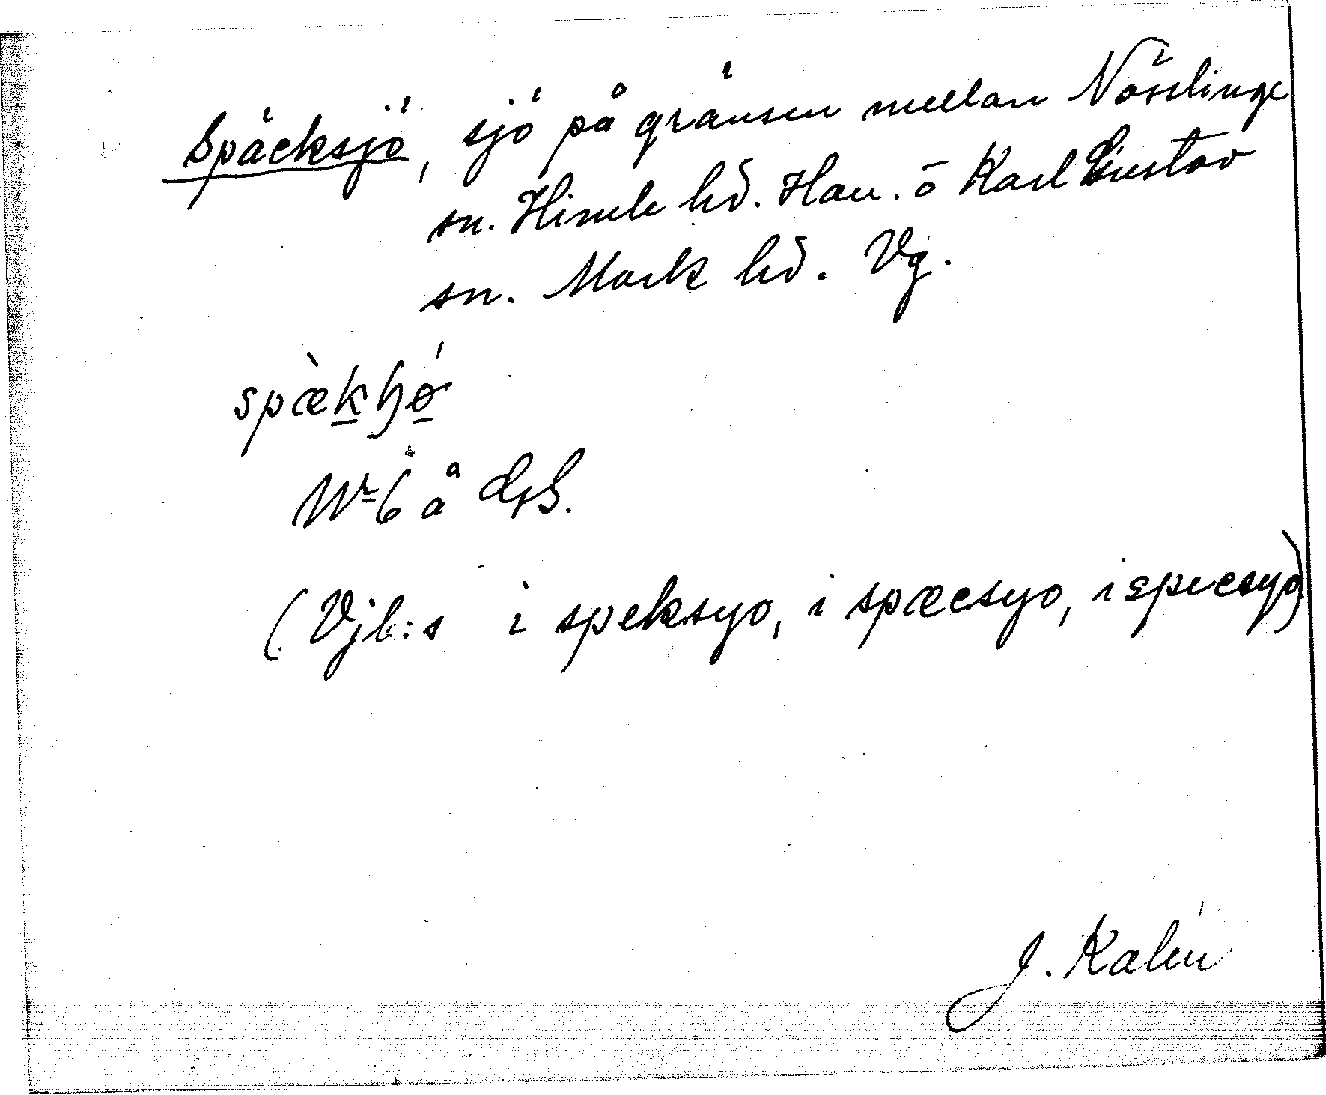 Späcksjö, sjö på gränsen mellan Nösslinge
sn. Himle hd. Hall. o Karl Gustav
sn. Mark hd. Vg.
spæ̀kɧǿ
Nr 6 å GS.
(Vjb:s i speksyo, i spæcsyo, i specsyo)
J. Kalén